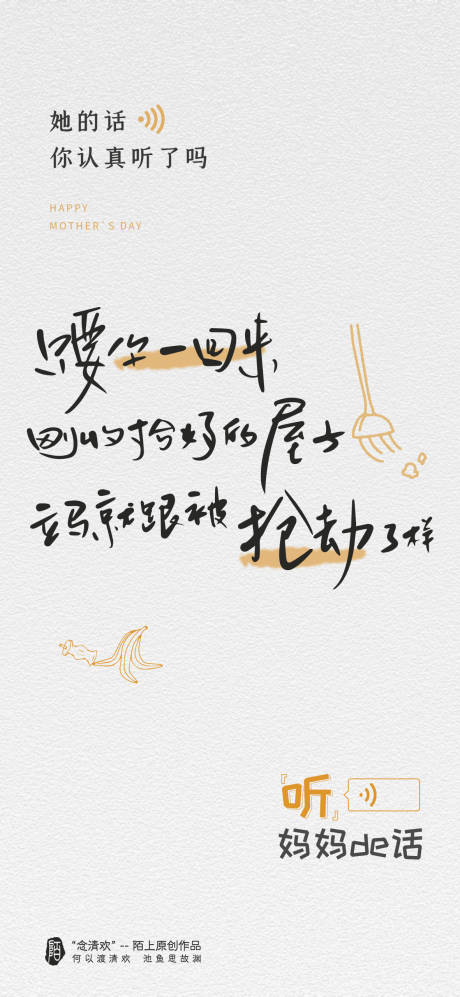 她的话
你认真听了吗
HAPPY
MOTHER`S DAY
只要你一回来,
刚收拾好的屋子
立马就跟被抢劫了样
『听』
妈妈de话
陌
“念清欢” -- 陌上原创作品
何以渡清欢 池鱼思故渊